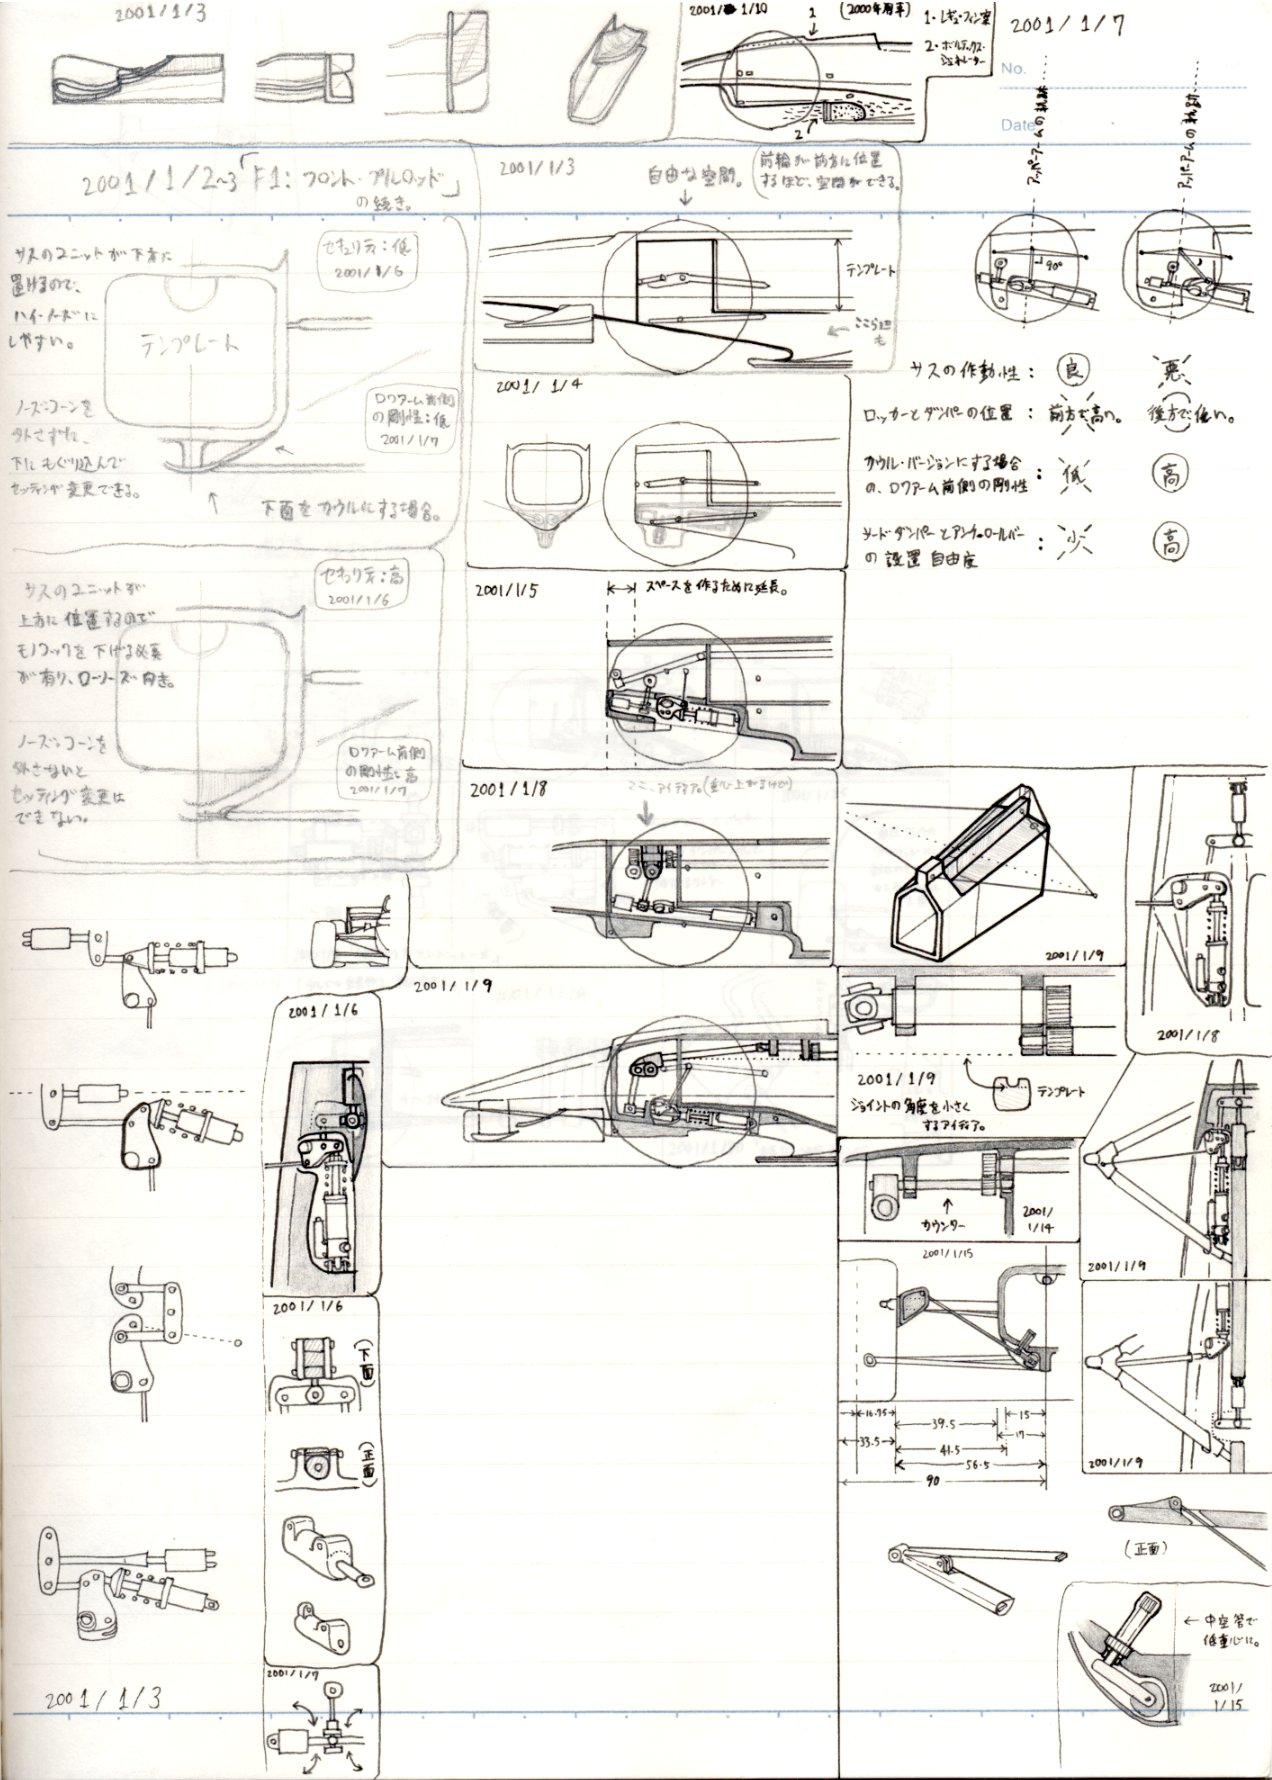 2001/1/3
2001/1/10
(2000年周辛)
1
1・レギュラーフィン案
2・ボルテックス・
ジェネレーター
2
2001/1/7
No.
Date
アッパーアームの軌跡
アッパーアームの軌跡
90°
2001/1/2~3「F1: フロント・プルロッド」
の続き。
2001/1/3
自由な空間。
前輪が前方に位置
するほど、空間ができる。
テンプレート
ここら辺
も
サスのユニットが下方に
置けるので、
ハイ・ノーズに
しやすい。
セキュリティ:低
2001/1/6
テンプレート
ノーズ・コーンを
外さずに、
下にもぐり込んで
セッティング変更できる。
ロワアーム前側
の剛性:低
2001/1/7
下面をカウルにする場合。
2001/1/4
サスの作動性: 良 悪
ロッカーとダンパーの位置: 前方で高い。 後方で低い。
カウル・バージョンにする場合
の、ロワアーム前側の剛性: 低 高
サード・ダンパーとアンチ・ロールバー
の設置自由度: 少 高
2001/1/5
スペースを作るために延長。
サスのユニットが
上方に位置するので
モノコックを下げる必要
が有り、ローノーズ向き。
セキュリティ:高
2001/1/6
ノーズ・コーンを
外さないと
セッティング変更は
できない。
ロワアーム前側
の剛性:高
2001/1/7
2001/1/8
ここ、アイディア。(重心上がるけど)
2001/1/9
2001/1/8
2001/1/9
2001/1/6
2001/1/9
ジョイントの角度を小さく
するアイディア。
テンプレート
カウンター
2001/
1/14
2001/1/9
2001/1/15
2001/1/6
(下面)
(正面)
16.75
39.5
15
33.5
41.5
17
56.5
90
2001/1/9
(正面)
中空管で
低重心に。
2001/
1/15
2001/1/3
2001/1/7